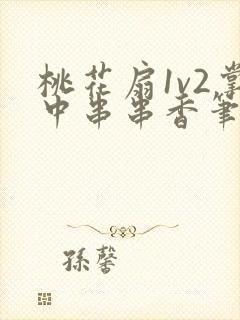 桃花扇1v2掌
中串串香笔
孫馨